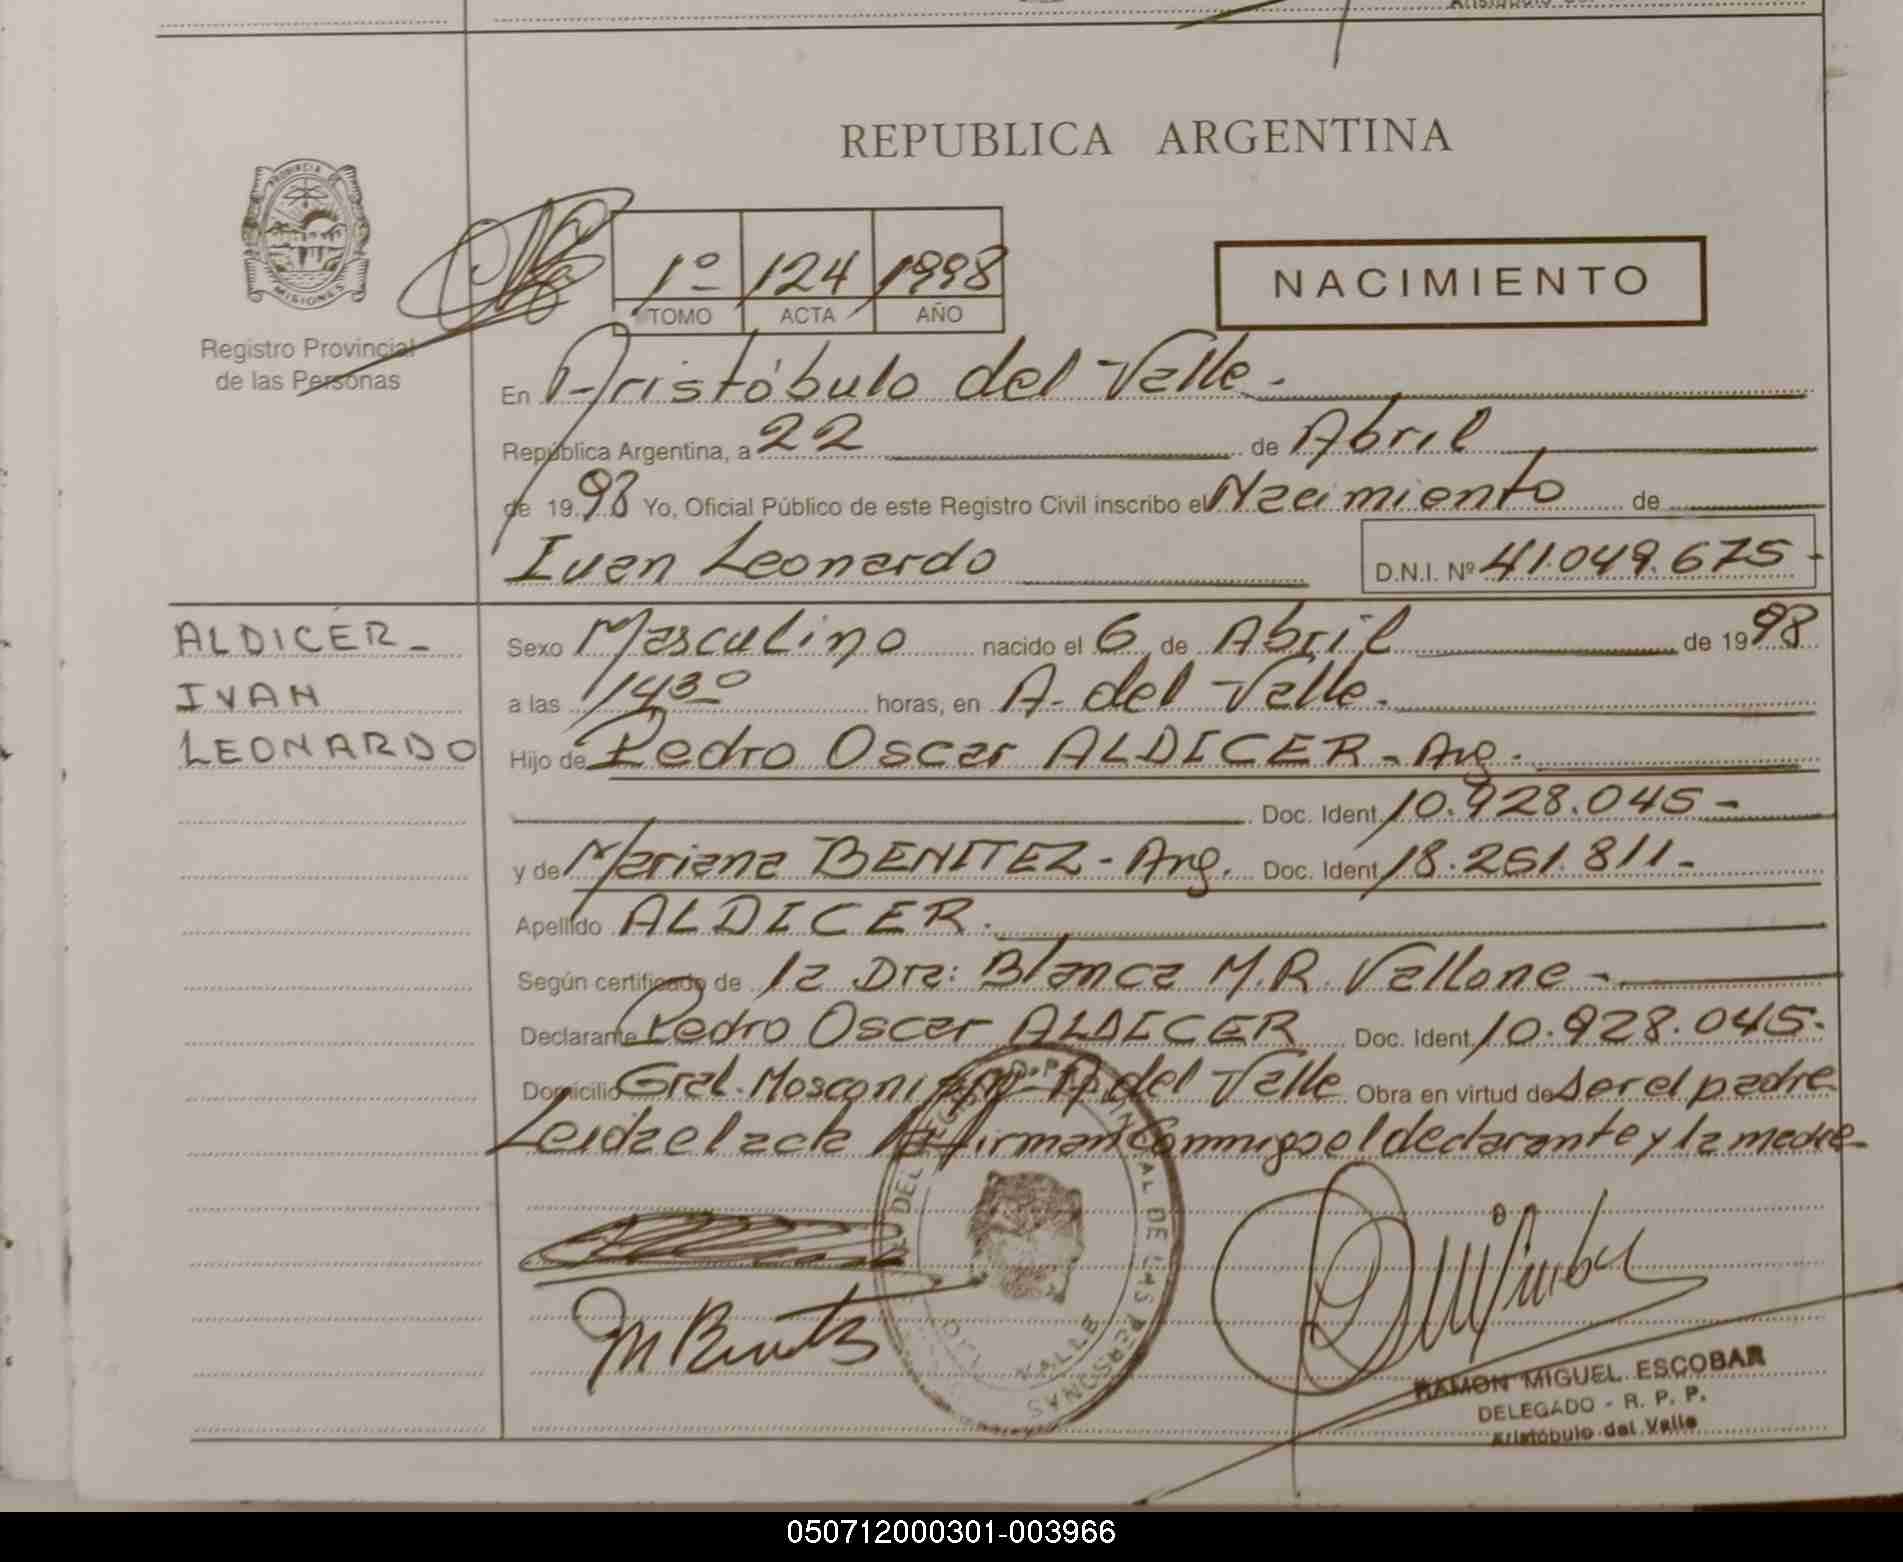 REPUBLICA ARGENTINA
PROVINCIA DE
MISIONES
Registro Provincial
de las Personas
1º 124 1998
TOMO ACTA AÑO
NACIMIENTO
En Aristóbulo del Valle.
República Argentina, a 22 de Abril
de 1998 Yo, Oficial Público de este Registro Civil inscribo el Nacimiento de
Ivan Leonardo D.N.I. Nº 41.049.675-
ALDICER-
IVAN
LEONARDO
Sexo Masculino nacido el 6 de Abril de 1998
a las 1430 horas, en A. del Valle.
Hijo de Pedro Oscar ALDICER - Arg.
Doc. Ident. 10.928.045-
y de Mariana BENITEZ - Arg. Doc. Ident. 18.261.811-
Apellido ALDICER.
Según certificado de la Dra: Blanca M.R. Vallone-
Declarante Pedro Oscar ALDICER Doc. Ident. 10.928.045.
Domicilio Gral. Mosconi A. del Valle Obra en virtud de ser el padre
Leida el acta la firman Conmigo el declarante y la madre-
DEL VALLE
RAMON MIGUEL ESCOBAR
DELEGADO - R. P. P.
Aristóbulo del Valle
050712000301-003966